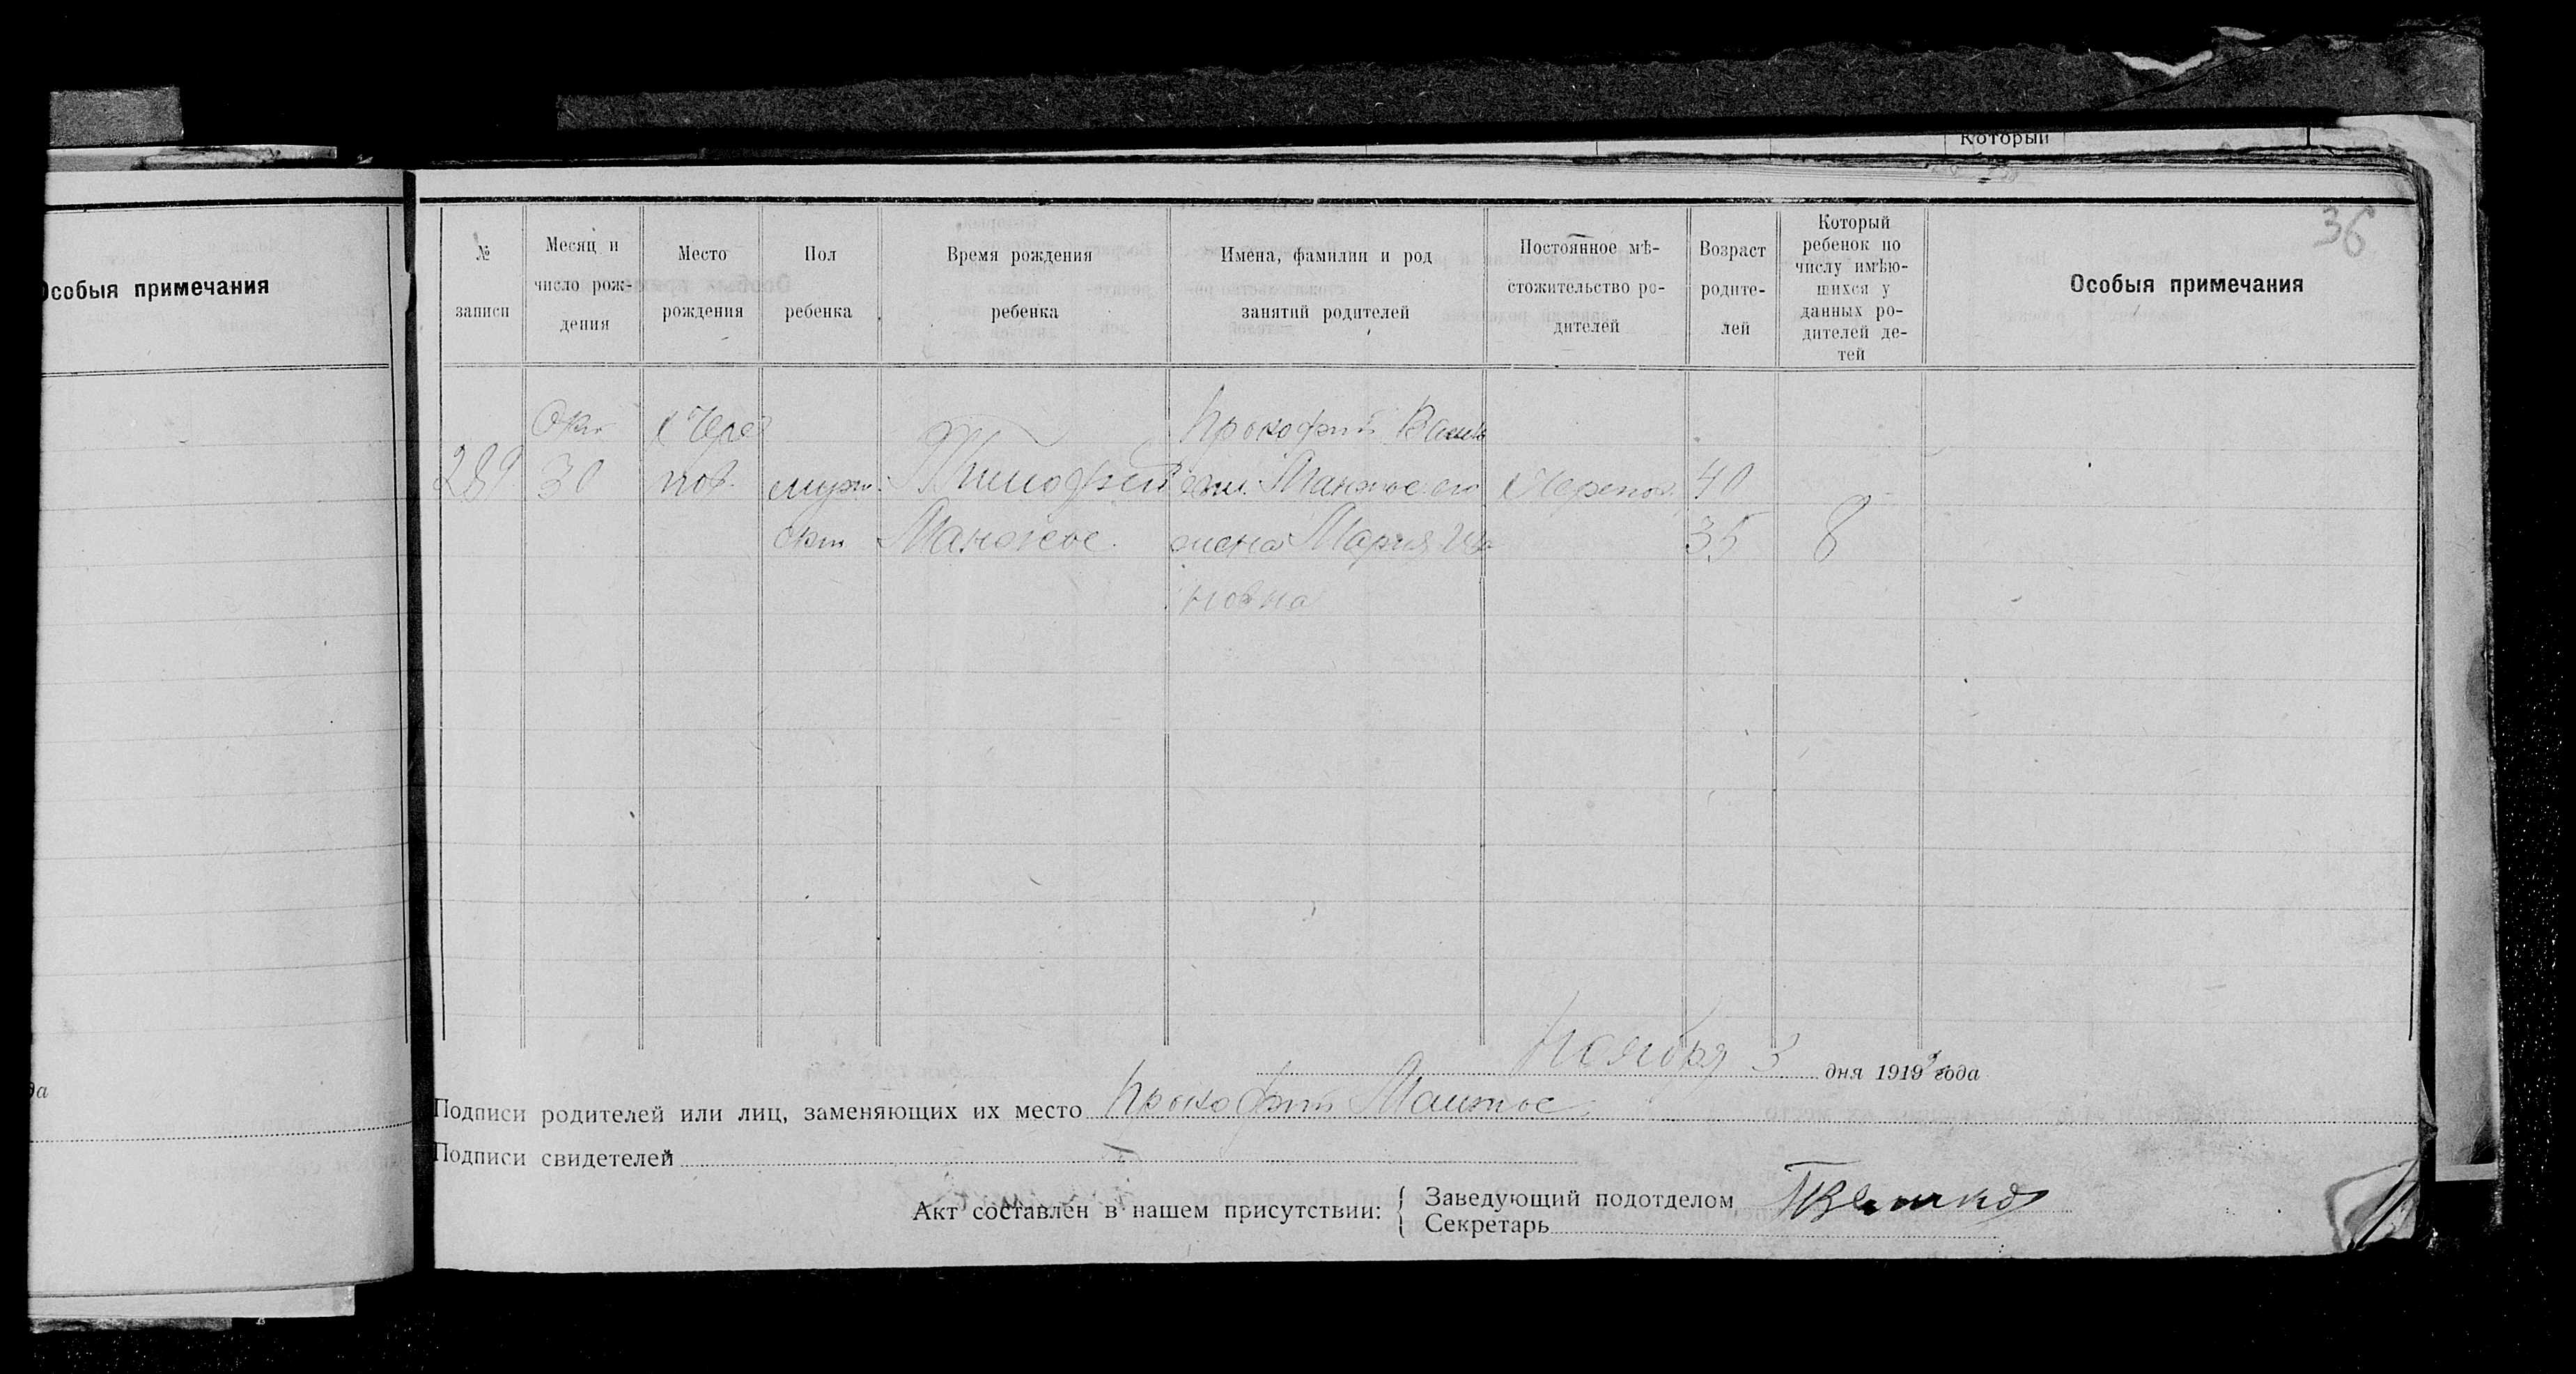 Который
36
Особыя примечания
№ записи
Месяц и число рож-дения
Место рождения
Пол ребенка
Время рождения ребенка
Имена, фамилии и род занятий родителей
Постоянное мѣ-стожительство ро-дителей
Возраст родите-лей
Который ребенок по числу имѣю-шихся у данных ро-дителей де-тей
Особыя примечания
Окт х Чере Прокофий Васил
289 30 пов. муж. Тимофей Манжос его х Черепов. 40
ск п Манжос. жена Мария Ива 35 8
новна
Ноября 3 дня 1919 года
да
Подписи родителей или лиц, заменяющих их место Прокофий Манжос
Подписи свидетелей
Акт составлен в нашем присутствии: Заведующий подотделом
Секретарь